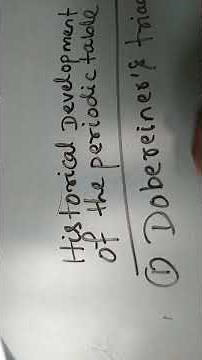 Historical Development
of the periodic table
① Dobereiner's